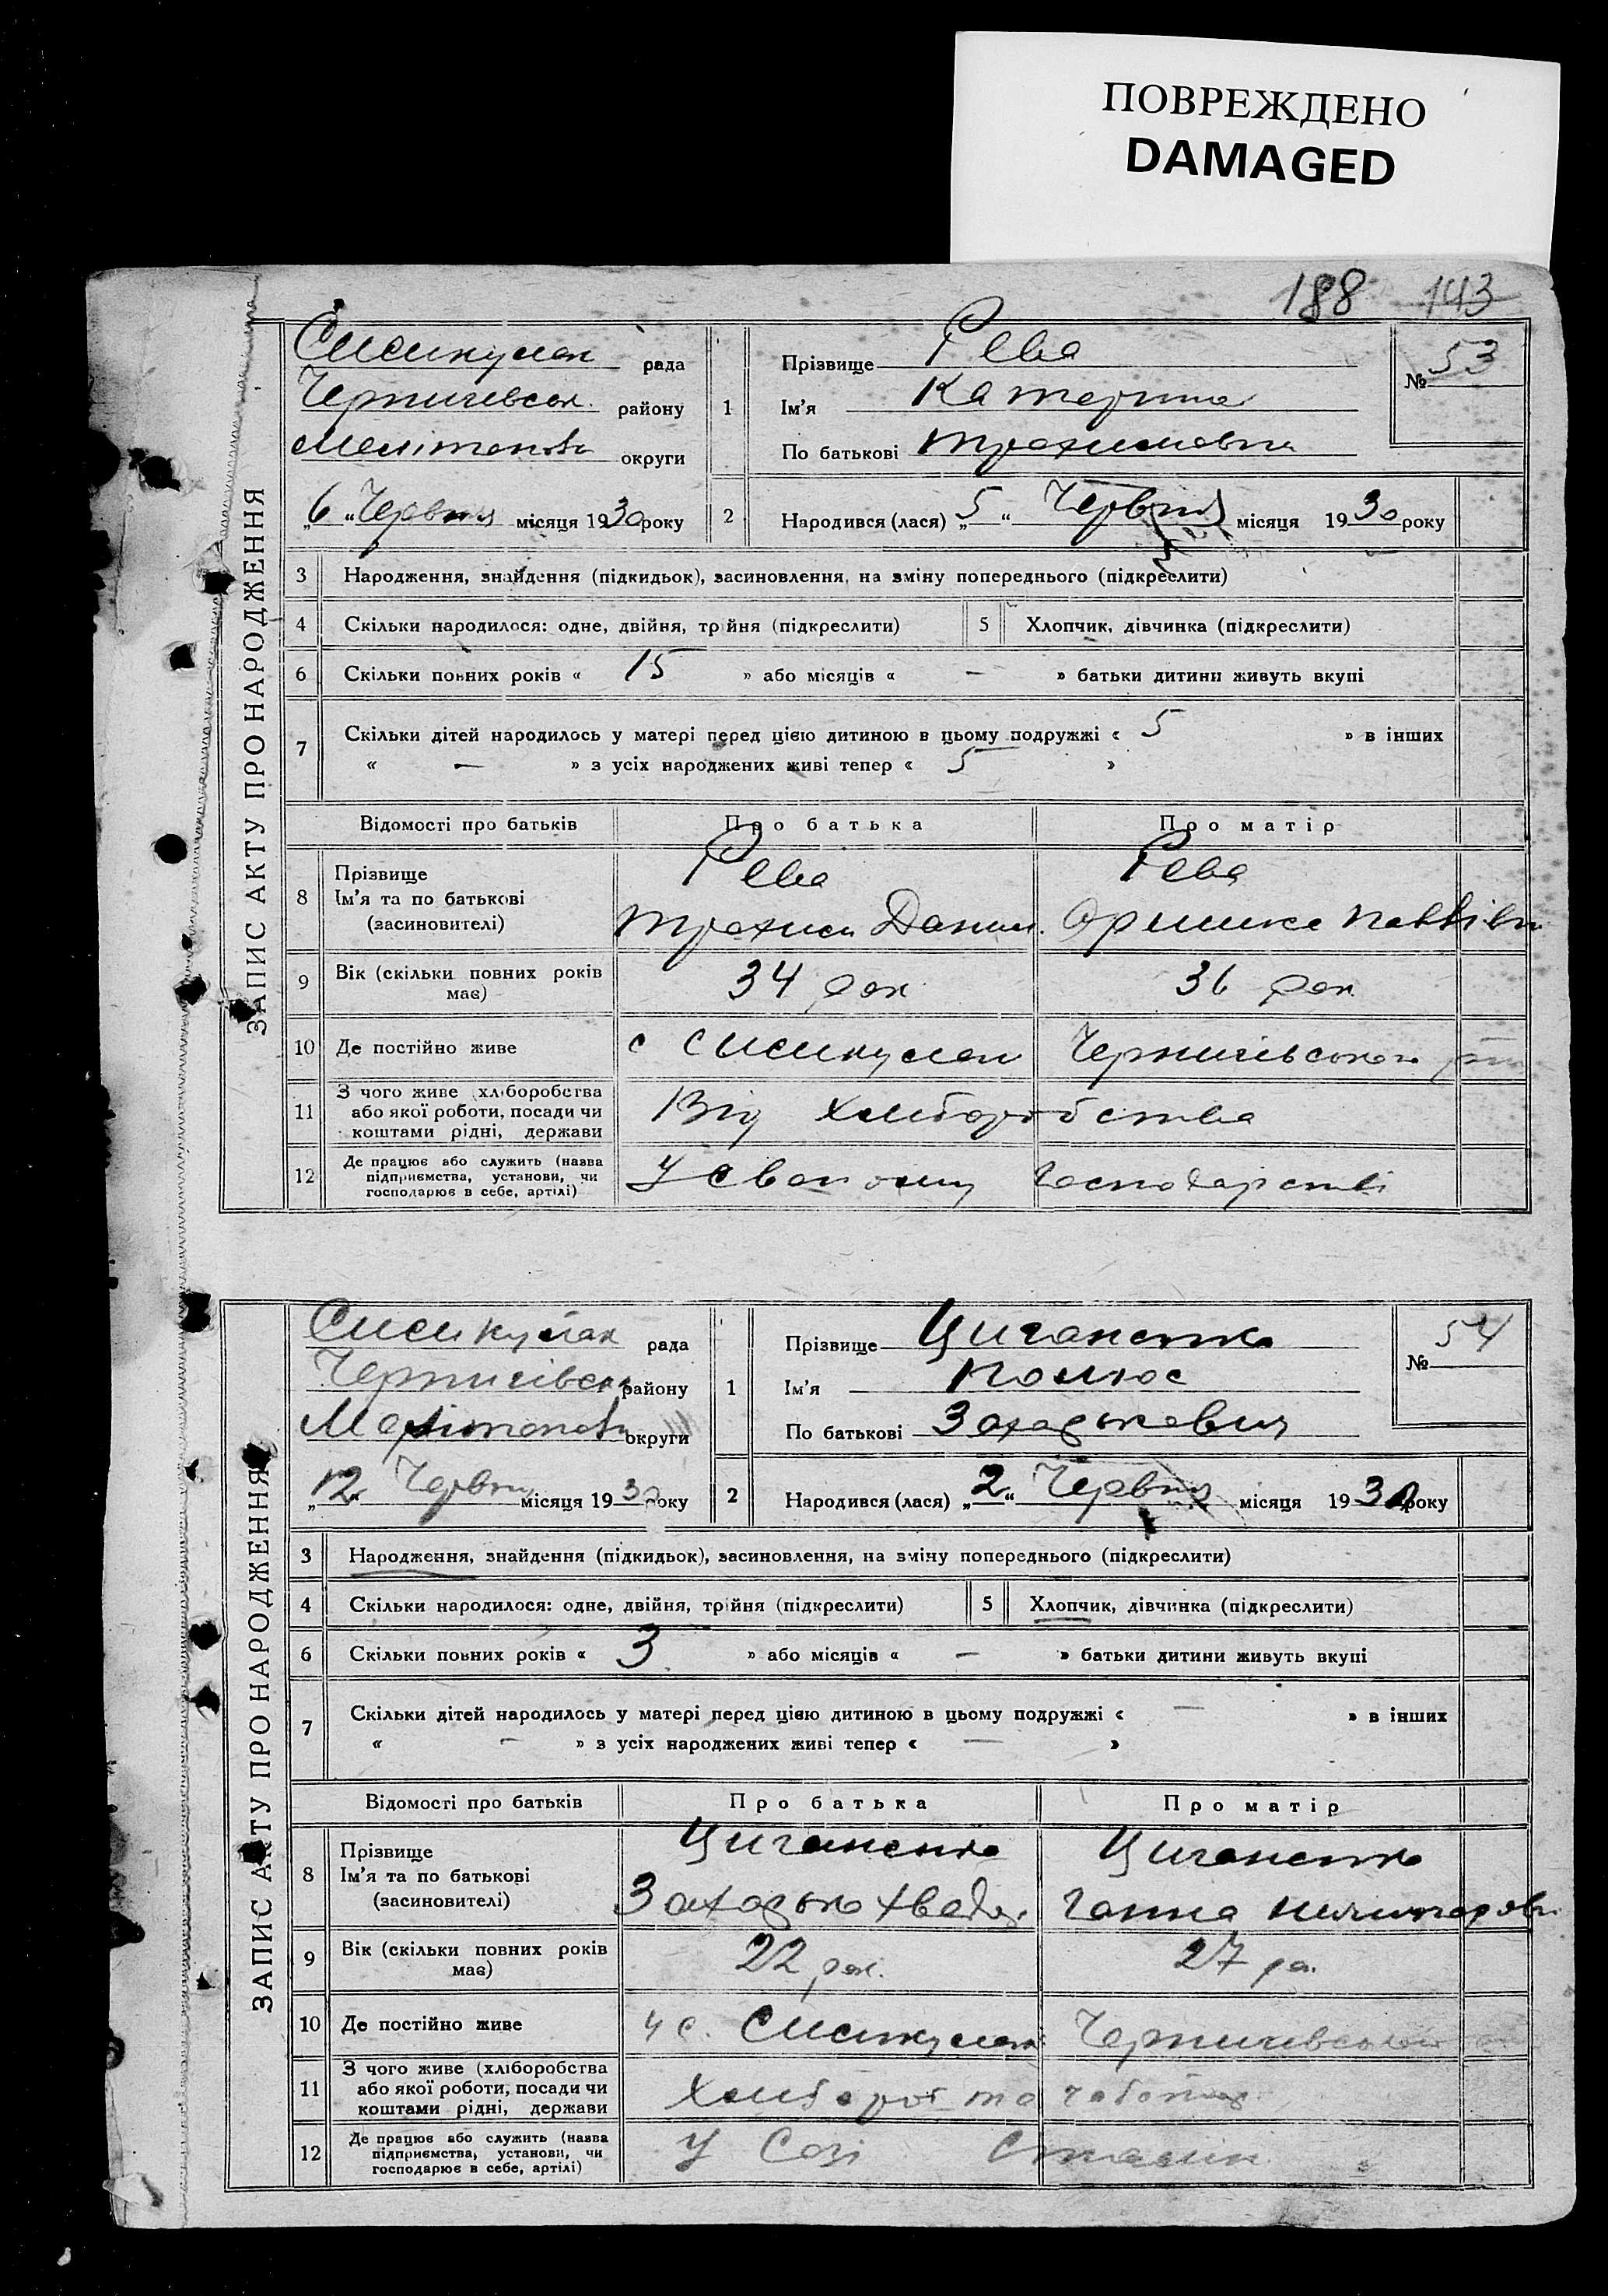 ПОВРЕЖДЕНО
DAMAGED
188 143
ЗАПИС АКТУ ПРО НАРОДЖЕННЯ
Сисикулак рада
Чернигівськ. району
Мелітопольс округи
„6“ Червня місяця 1930 року
1 Прізвище Рева
Ім'я Катерина
По батькові Трохимовна
№ 53
2 Народився (лася) „5“ Червня місяця 1930 року
3 Народження, знайдення (підкидьок), засиновлення, на зміну попереднього (підкреслити)
4 Скільки народилося: одне, двійня, трійня (підкреслити) 5 Хлопчик, дівчинка (підкреслити)
6 Скільки повних років « 15 » або місяців « — » батьки дитини живуть вкупі
7 Скільки дітей народилось у матері перед цією дитиною в цьому подружжі « 5 » в інших
« — » з усіх народжених живі тепер « 5 »
Відомості про батьків Про батька Про матір
8 Прізвище Рева Рева
Ім'я та по батькові Трохим Данил.
(засновителі)
9 Вік (скільки повних років має) 34 рок 36 рок
10 Де постійно живе с Сисикулак Чернигівського
11 З чого живе (хліборобства або якої роботи, посади чи коштами рідні, держави Від хліборобства
12 Де працює або служить (назва підприємства, установи, чи господарює в себе, артілі) У своему господарстві
ЗАПИС АКТУ ПРО НАРОДЖЕННЯ
Сисикулак рада
Чернигівськ району
Мелітопольс округи
„12“ Червня місяця 1930 року
1 Прізвище Циганенко
Ім'я
По батькові Захарькович
№ 54
2 Народився (лася) „2“ Червня місяця 1930 року
3 Народження, знайдення (підкидьок), засиновлення, на зміну попереднього (підкреслити)
4 Скільки народилося: одне, двійня, трійня (підкреслити) 5 Хлопчик, дівчинка (підкреслити)
6 Скільки повних років « 3 » або місяців « — » батьки дитини живуть вкупі
7 Скільки дітей народилось у матері перед цією дитиною в цьому подружжі « — » в інших
« — » з усіх народжених живі тепер « — »
Відомості про батьків Про батька Про матір
8 Прізвище Циганенко Циганенко
Ім'я та по батькові Захарько Хведор. Ганна
(засиновителі)
9 Вік (скільки повних років має) 22 рок. 27 ро.
10 Де постійно живе с. Сисикулак Чернигівського
11 З чого живе (хліборобства або якої роботи, посади чи коштами рідні, держави Хлібороб
12 Де працює або служить (назва підприємства, установи, чи господарює в себе, артілі) У Созі Сталін